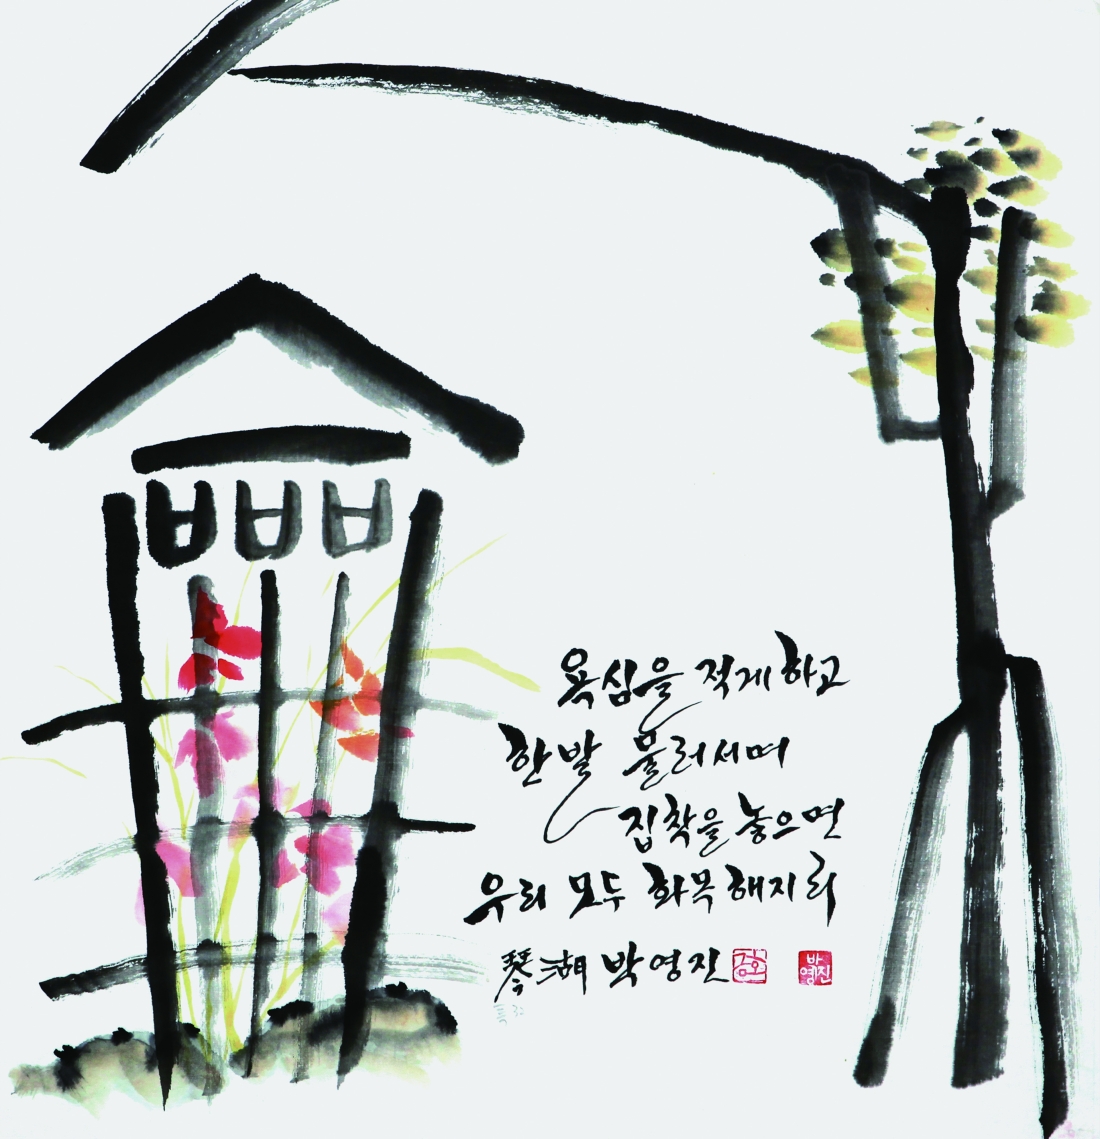 욕심을 적게 하고
한발 물러서며
집착을 놓으면
우리 모두 화목해지리
琴湖 박영진 금호 박영진